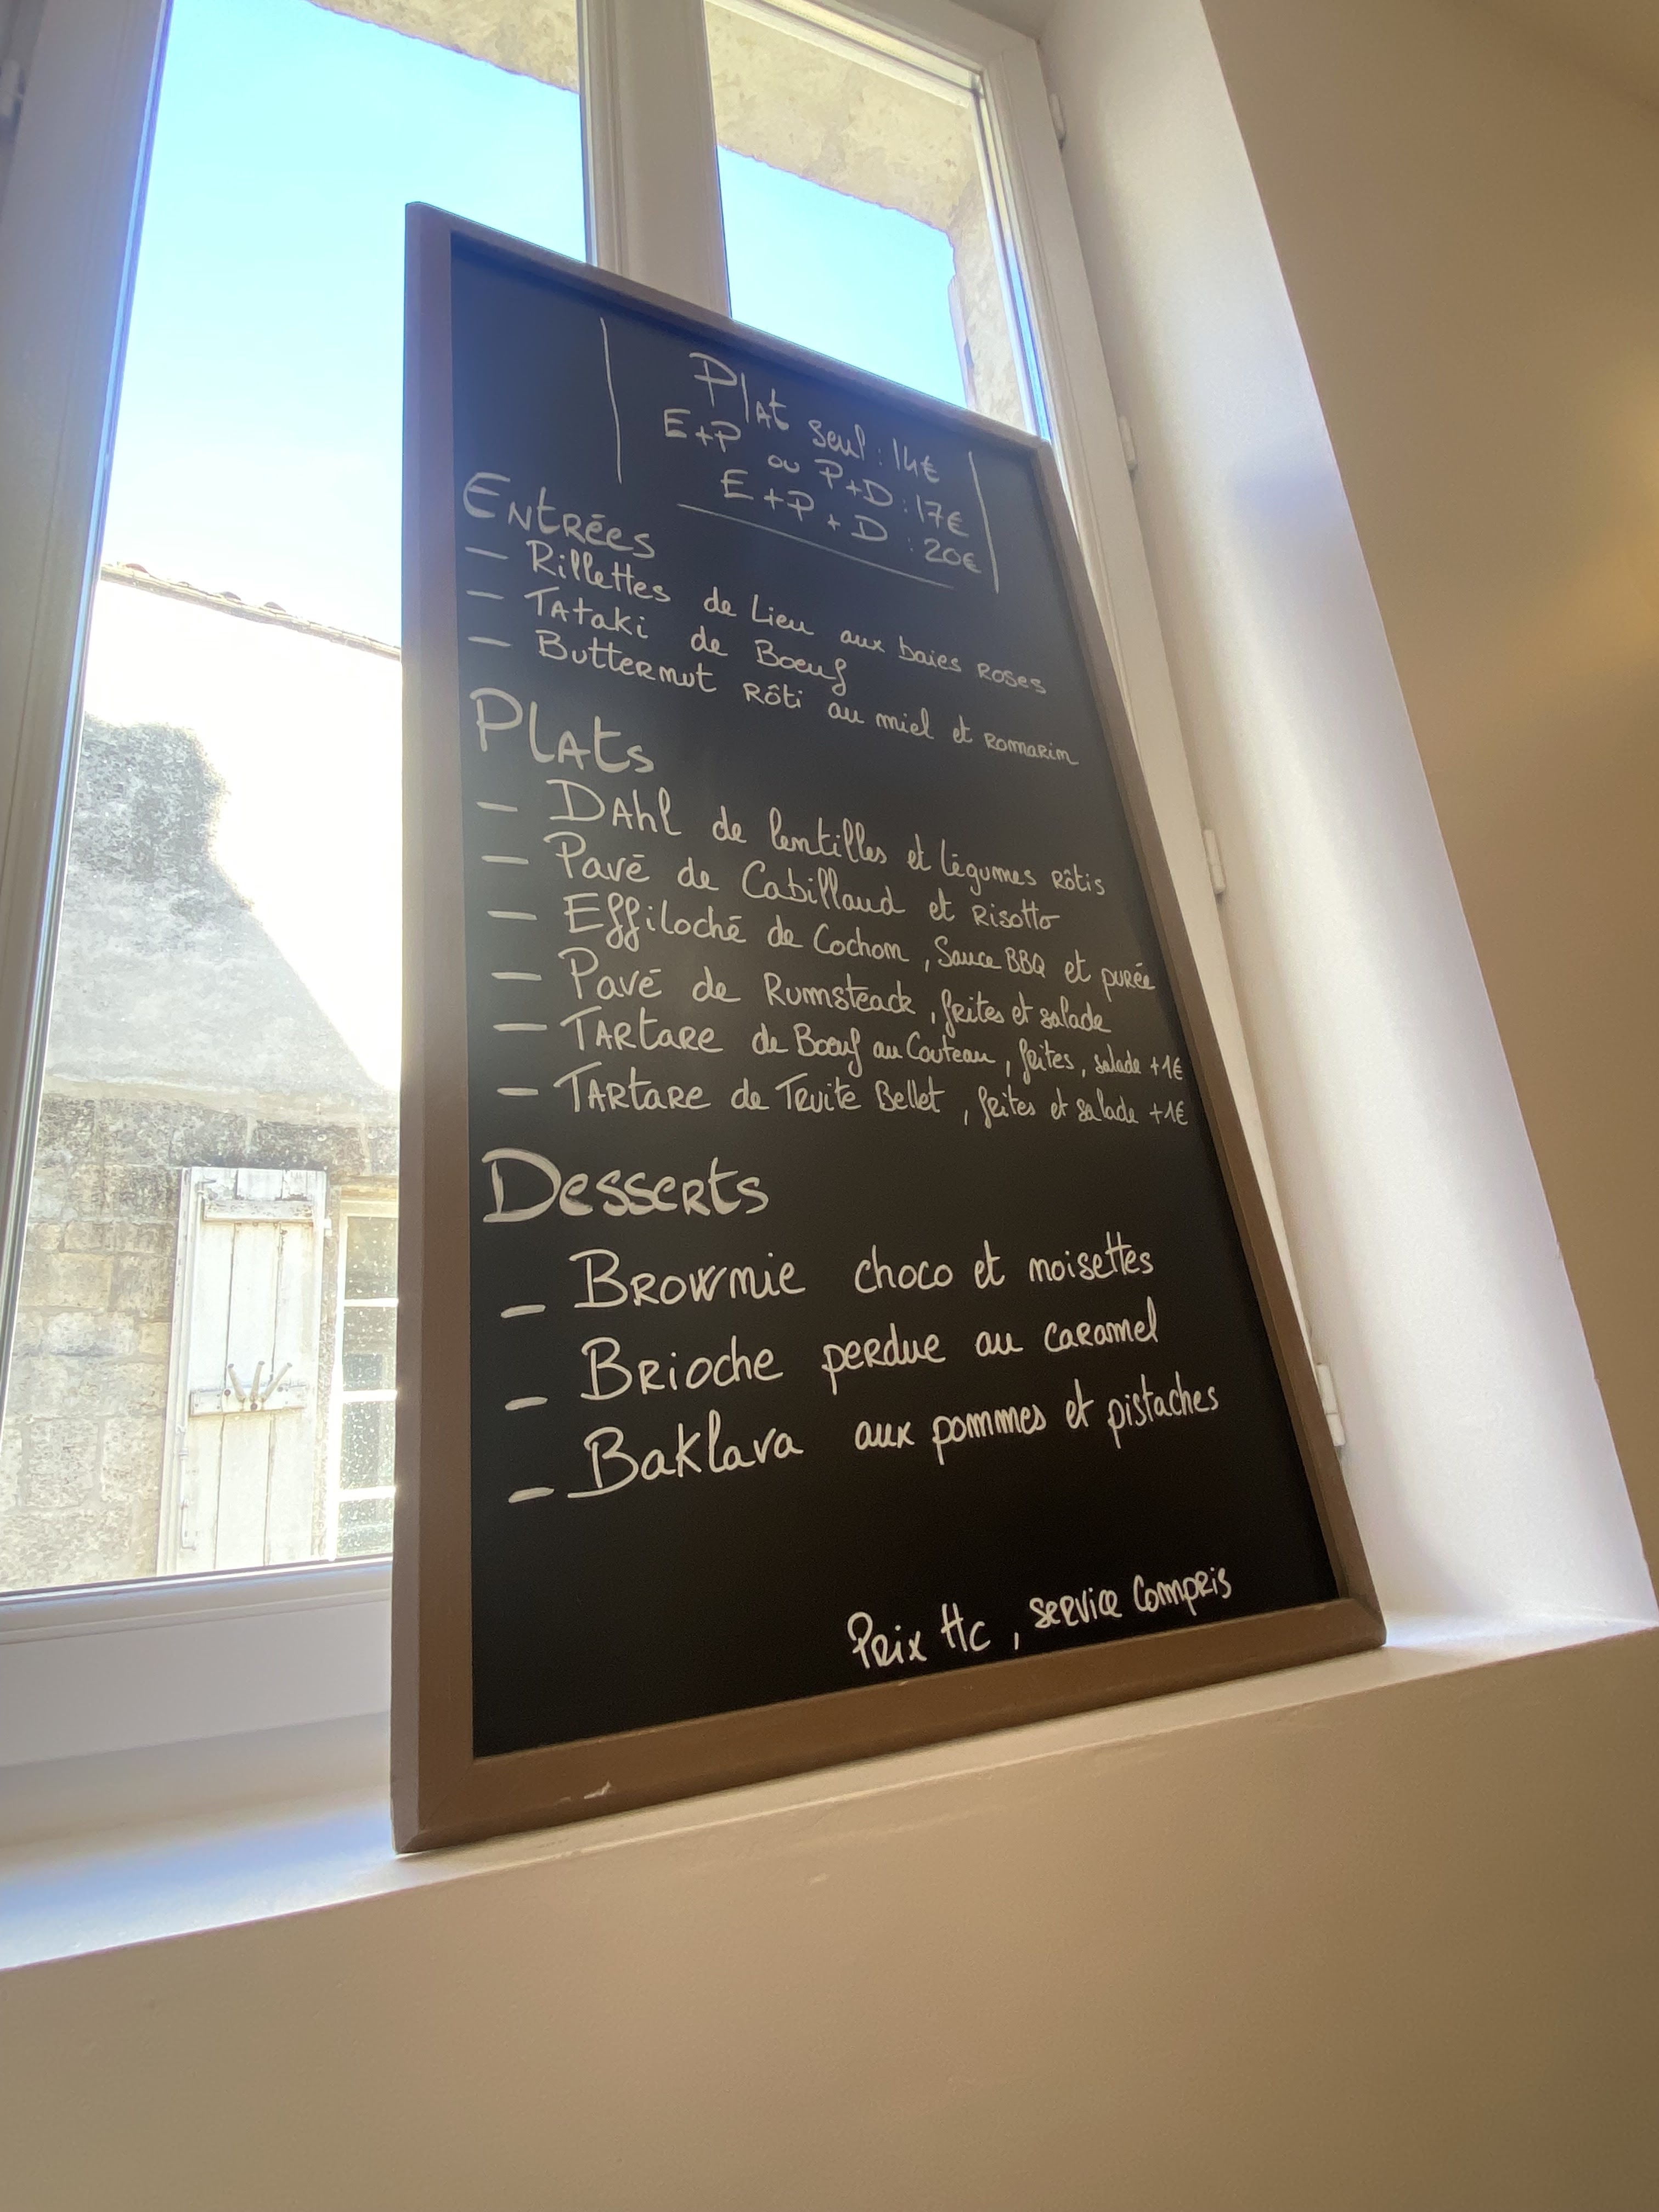 Plat seul : 14€
E+P ou P+D : 17€
E+P+D : 20€
Entrées
- Rillettes de Lieu aux baies Roses
- Tataki de Bœuf
- Butternut Rôti au miel et Romarin
Plats
- Dahl de lentilles et légumes Rôtis
- Pavé de Cabillaud et Risotto
- Effiloché de Cochon, Sauce BBQ et purée
- Pavé de Rumsteack, frites et salade
- Tartare de Bœuf au Couteau, frites, salade +1€
- Tartare de Truite Bellet, frites et salade +1€
Desserts
- Brownie choco et noisettes
- Brioche perdue au caramel
- Baklava aux pommes et pistaches
Prix HC, service Compris